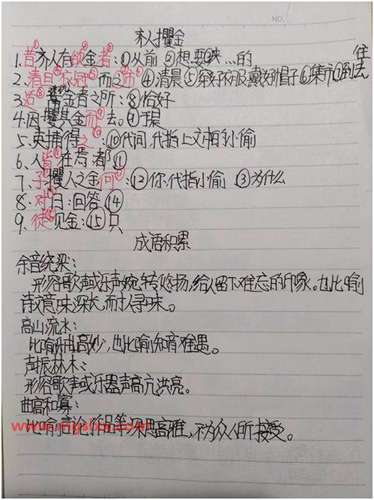 齐人攫金
1.昔齐人有欲金者:①从前 ②想要 ③……的
2.清旦衣冠而之市 ④清晨 ⑤穿好衣服戴好帽子 ⑥集市 ⑦到去往
3.适鬻金者之所:⑧恰好
4.因攫其金而去。⑨
5.吏捕得之:⑩代词,代指上文中的小偷
6.人皆在焉:都⑪
7.子攫人之金何:⑫你:代指小偷 ⑬为什么
8.对曰:回答⑭
9.徒见金:⑮只
成语积累
余音绕梁:
形容歌声或乐声婉转悠扬,给人留下难忘的印象。也比喻
诗文意味深长,耐人寻味。
高山流水:
比喻乐曲高妙,也比喻知音难遇。
声振林木:
形容歌声或乐器声高亢洪亮。
曲高和寡:
比喻言论、作品等深奥高雅,不为众人所接受。